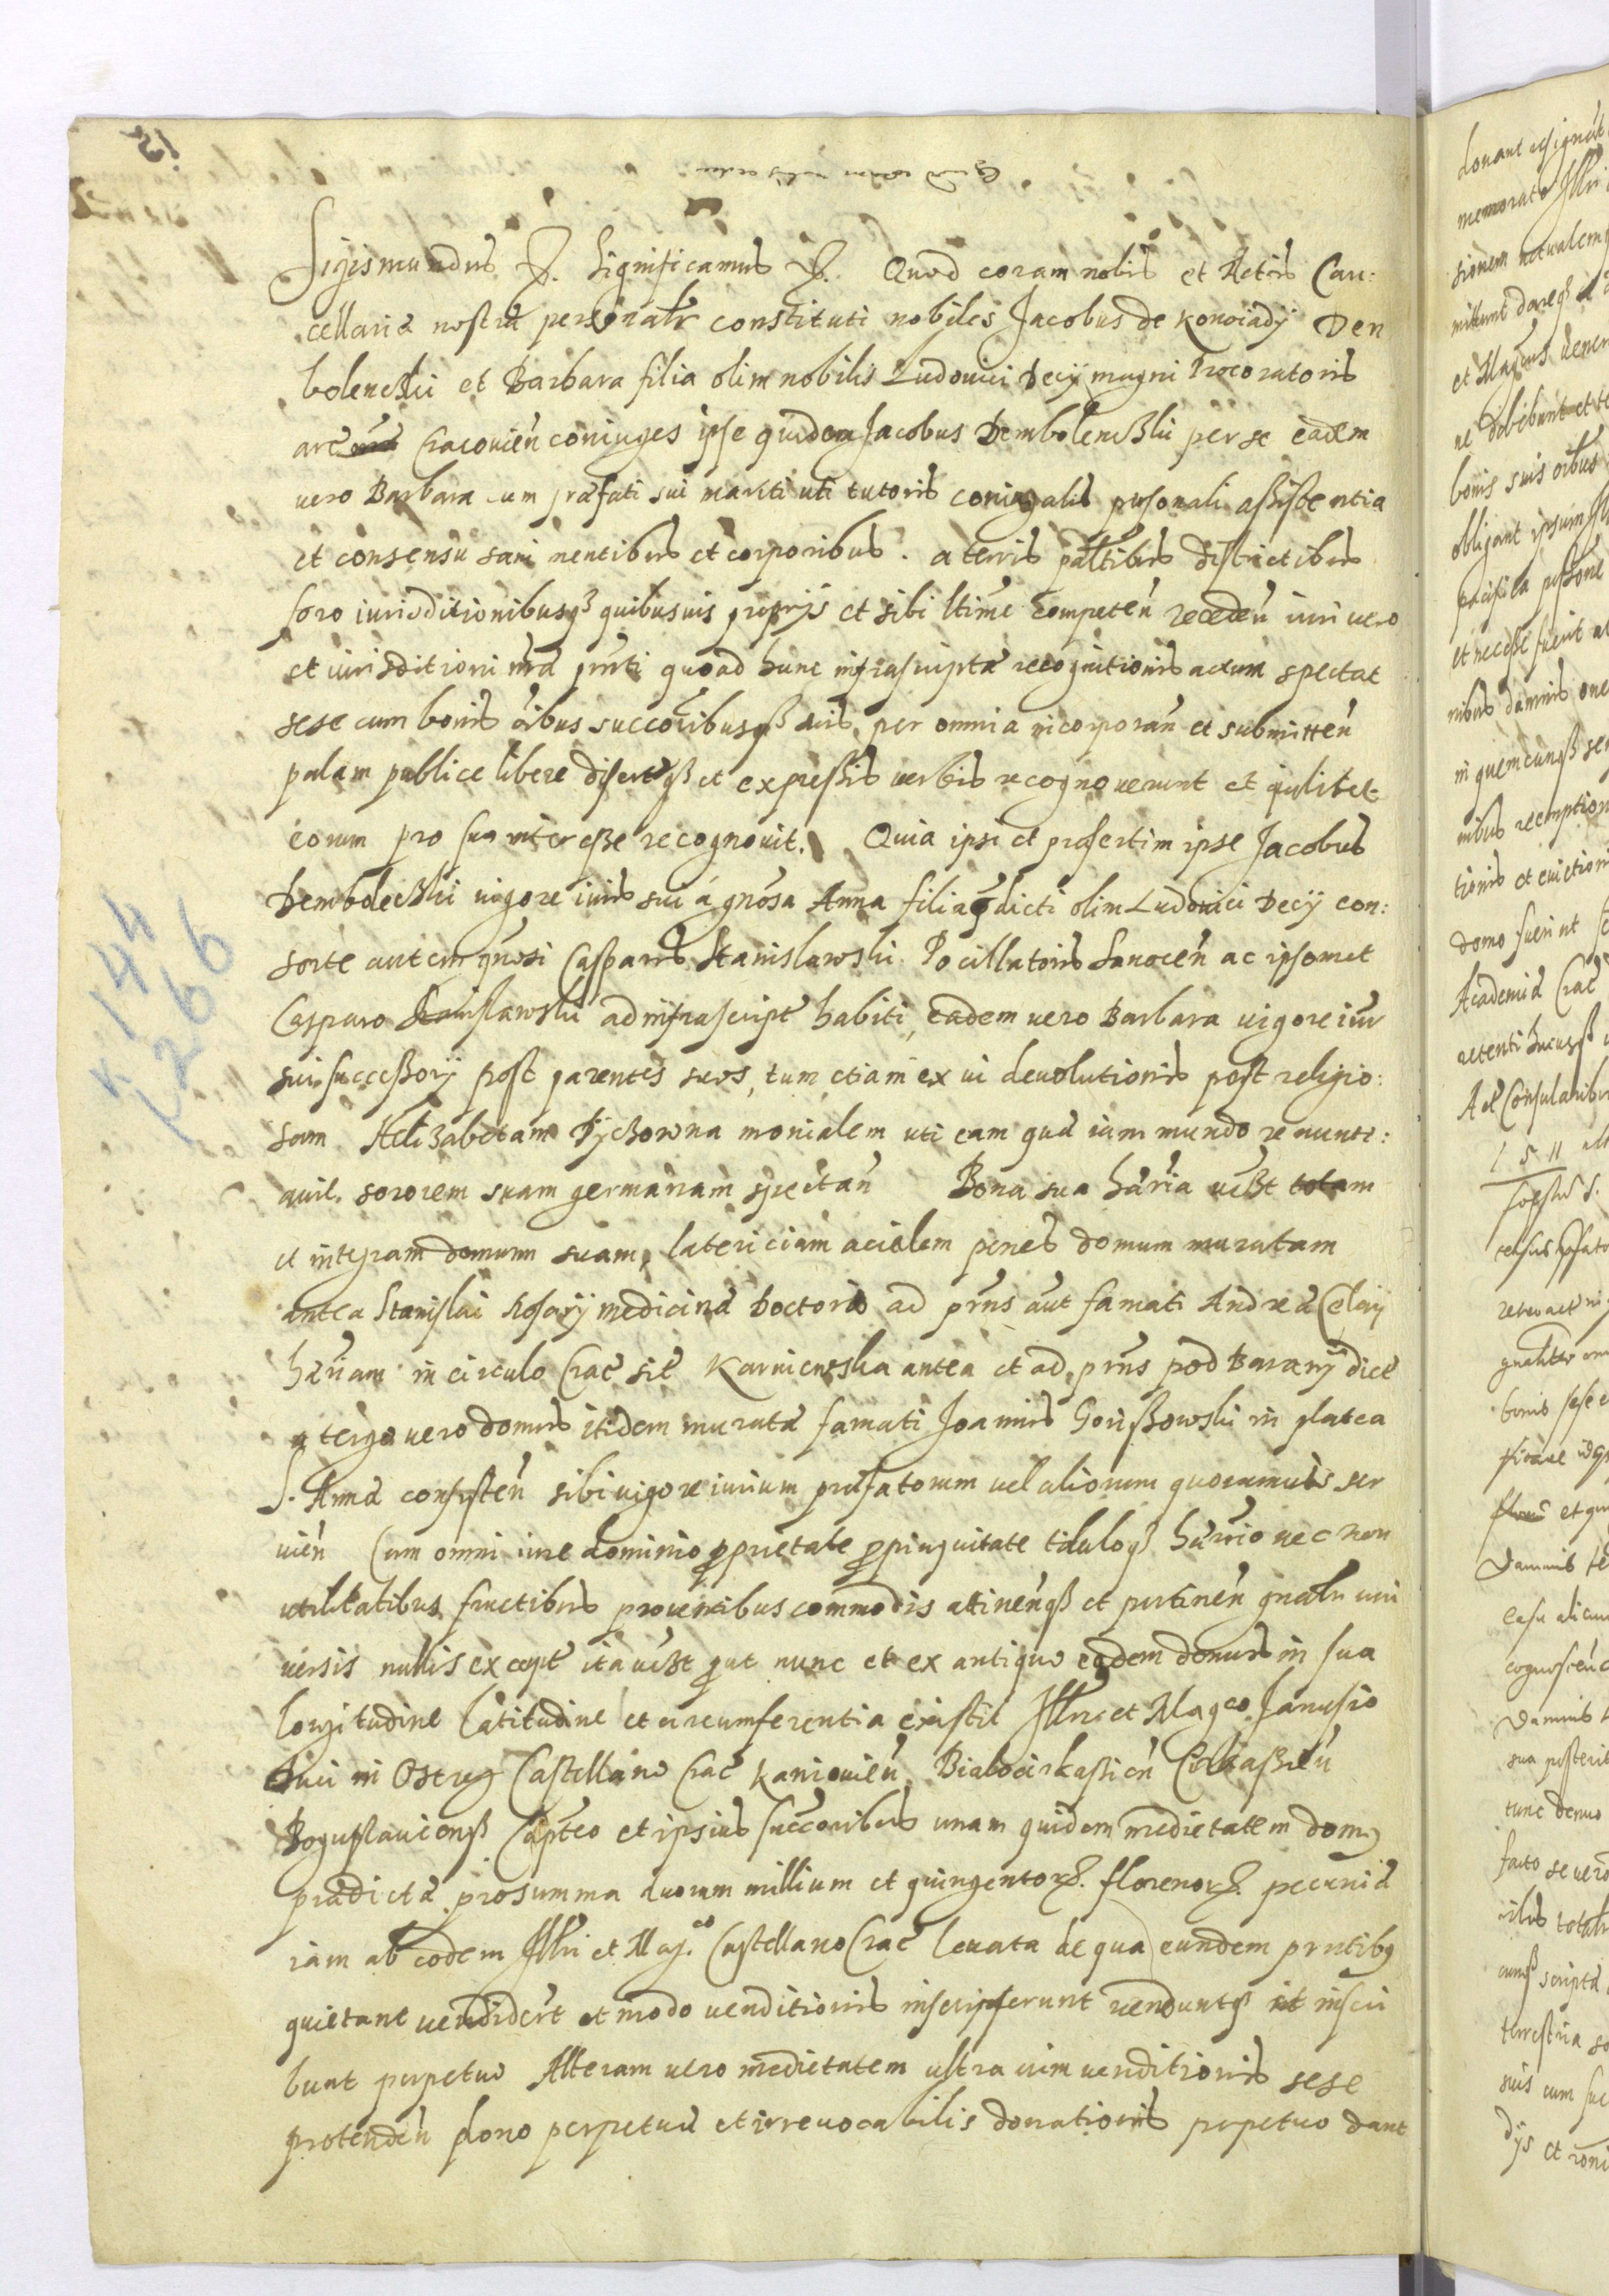 15
Sigismundus &. Significamus &. Quod coram nobis et Actis Can:
cellariæ nostræ personalr constituti nobiles Jacobus de Konoiady Dem
bolenczki et Barbara filia olim nobilis Ludouici Decij magni Procoratoris
arc Cracouien coniuges ipse quidem Jacobus Dembolenczki per se eadem
vero Barbara cum præfati sui mariti uti tutoris coniugalis personali assistentia
et consensu sani mentibus et corporibus. a terris paltibus districtibus
foro iurisditionibusq quibusuis proprijs et sibi ltime competen receden iuri vero
et iurisditioni nræ prnti quoad hunc infrascriptæ recognitionis actum spectat
sese cum bonis oibus succoribusq suis per omnia incorporan et submitten
palam publice libere diserteq et expressis uerbis recognouerunt et quilibet
eorum pro sua interesse recognouit. Quia ipsi et præsertim ipse Jacobus
Dembolecki uigore iuris sui à gnosa Anna filia prædicti olim Ludouici Decij con:
sorte autem gnosi Casparis Stanislawski Pocillatoris Sanocen ac ipsomet
Casparo Stanislawski ad infrascript habiti, eadem uero Barbara uigore iur
sui successorij post parentes suos, tum etiam ex ui deuolutionis post religio:
sam Helizabetam Dyczowna monialem uti eam quæ iam mundo renunti:
auit. sororem suam germanam spectan Bona sua hæria uczt totam
et integram domum suam, latericiam acialem penes domum muratam
antea Stanislai Rosarij medicinæ Doctoris ad prns aut famati Andreæ Celarij
hæriam in circulo Crac sit Karniowska antea et ad prns pod Barany dict
a tergo uero domus itidem muratæ famati Joannis Goriszowski in platea
S. Annæ consisten sibi uigore iurium præfatorum uel aliorum quorumuis ser
uien Cum omni iure dominio pprietate ppinquitate tituloq hærrio nec non
utilitatibus fructibus prouentibus commodis attinenq et pertinen gnalr uni
uersis nullis except ita uczt put nunc et ex antiquo eadem domus in sua
longitudine latitudine et circumferentia existit Illri et Magco Janusio
Duci in Ostrog Castellano Crac Kaniouien, Bialocirkassien Cirkassien
Boguslauienq Capteo et ipsius succoribus unam quidem medietatem domus
prædictæ pro summa duorum millium et quingentor. florenor. pecuniæ
iam ab eodem Illri et Mag.co Castellano Crac leuata de qua eundem prntibus
quietant uendidert et modo uenditionis inscripserunt uenduntq et inscri
bunt perpetuo Alteram uero medietatem ultra uim uenditionis sese
protenden dono perpetuæ et irreuocabilis donationis perpetuo dant
K 144
L 266
donant
memorato Illri
sionem actualem
mittunt
et Magcus
ne debebunt et
bonis suis oibus
obligant ipsum
pacifica
et necesse fuerit
nibus damnis
in quemcunq
nibus
tionis et euictionis
domo fuerint
Academiæ Crac
1511